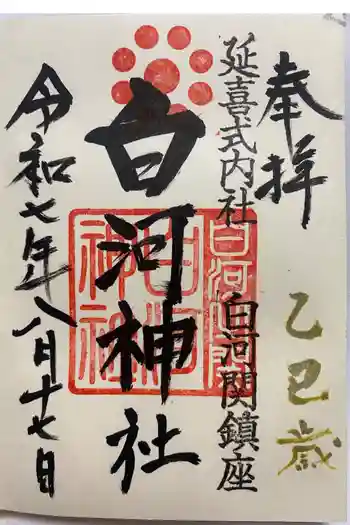 奉拝
乙巳歳
延喜式内社
白河関鎮座
白河神社
令和七年八月十七日